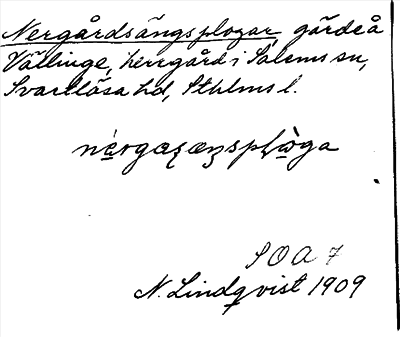 Nergårdsängsplogar, gärde å
Vällinge, herrgård i Salems sn,
Svartlösa hd, Sthlms l.
SOA 7
N. Lindqvist 1909